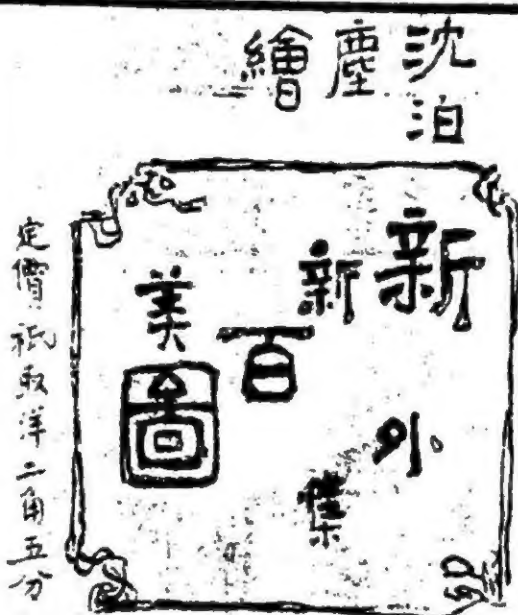 沈泊塵繪
新新百美圖
外集
定價祇取洋二角五分